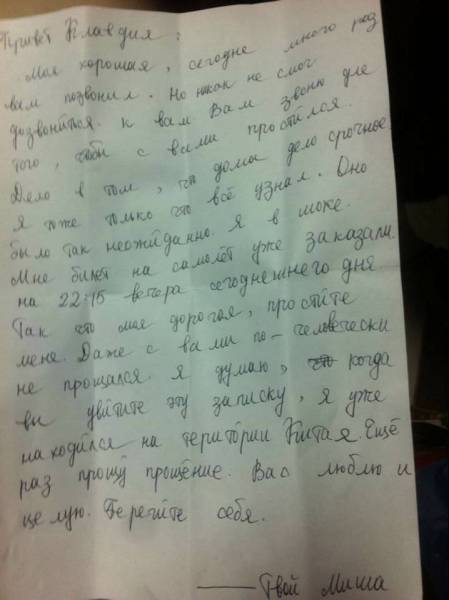 Привет Клавдия:
Моя хорошая, сегодне много раз
вам позвонил. Но никак не смог
дозвонится. К вам Вам звоню дле
того, чтобы с вами простился.
Дело в том, что дома дело срочное
Я тоже только что всё узнал. Оно
было так неожиданно. Я в шоке.
Мне билет на самолёт уже заказали
на 22:15 вечера сегоднешнего дня
Так что моя дорогая, простите
меня. Даже с вами по-человечески
не прощался. Я думаю, что когда
вы увитите эту записку, я уже
находился на територии Китая. Ещё
раз прощу прощение. Вас люблю и
целую. Берегите себя.
Твой Миша